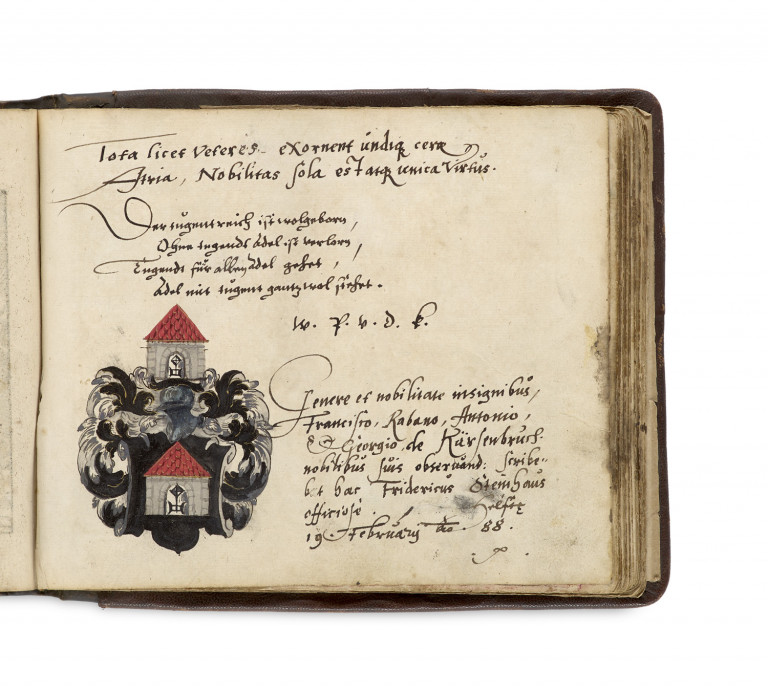 Tota licet veteres exornent undiq cerę
Atria, Nobilitas sola est atq unica Virtus.
Der tugentreich ist wolgeborn,
Ohne tugendt Adel ist verlorn,
Tugendt für allen Adel gehet,
Adel mit tugent gantz wol stehet.
W. P. v. d. k.
Genere et nobilitate insignibus,
Francisco, Rabano, Antonio,
& Georgio de Kärsenbruch
nobilibus suis observand: scribe-
bat hæc Fridericus Steinhaus
officiosè.
19. Februarij Ao. 88.